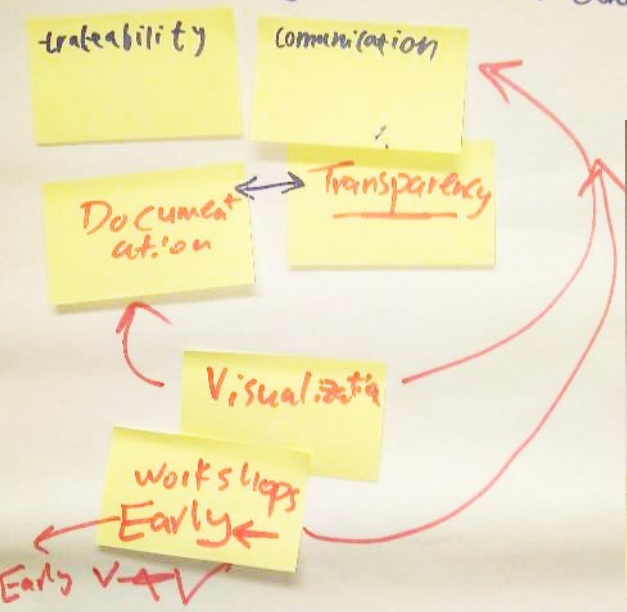 traleability
Comunication
Document
ation
Transparency
Visualizatia
workshops
Early
Early V+V